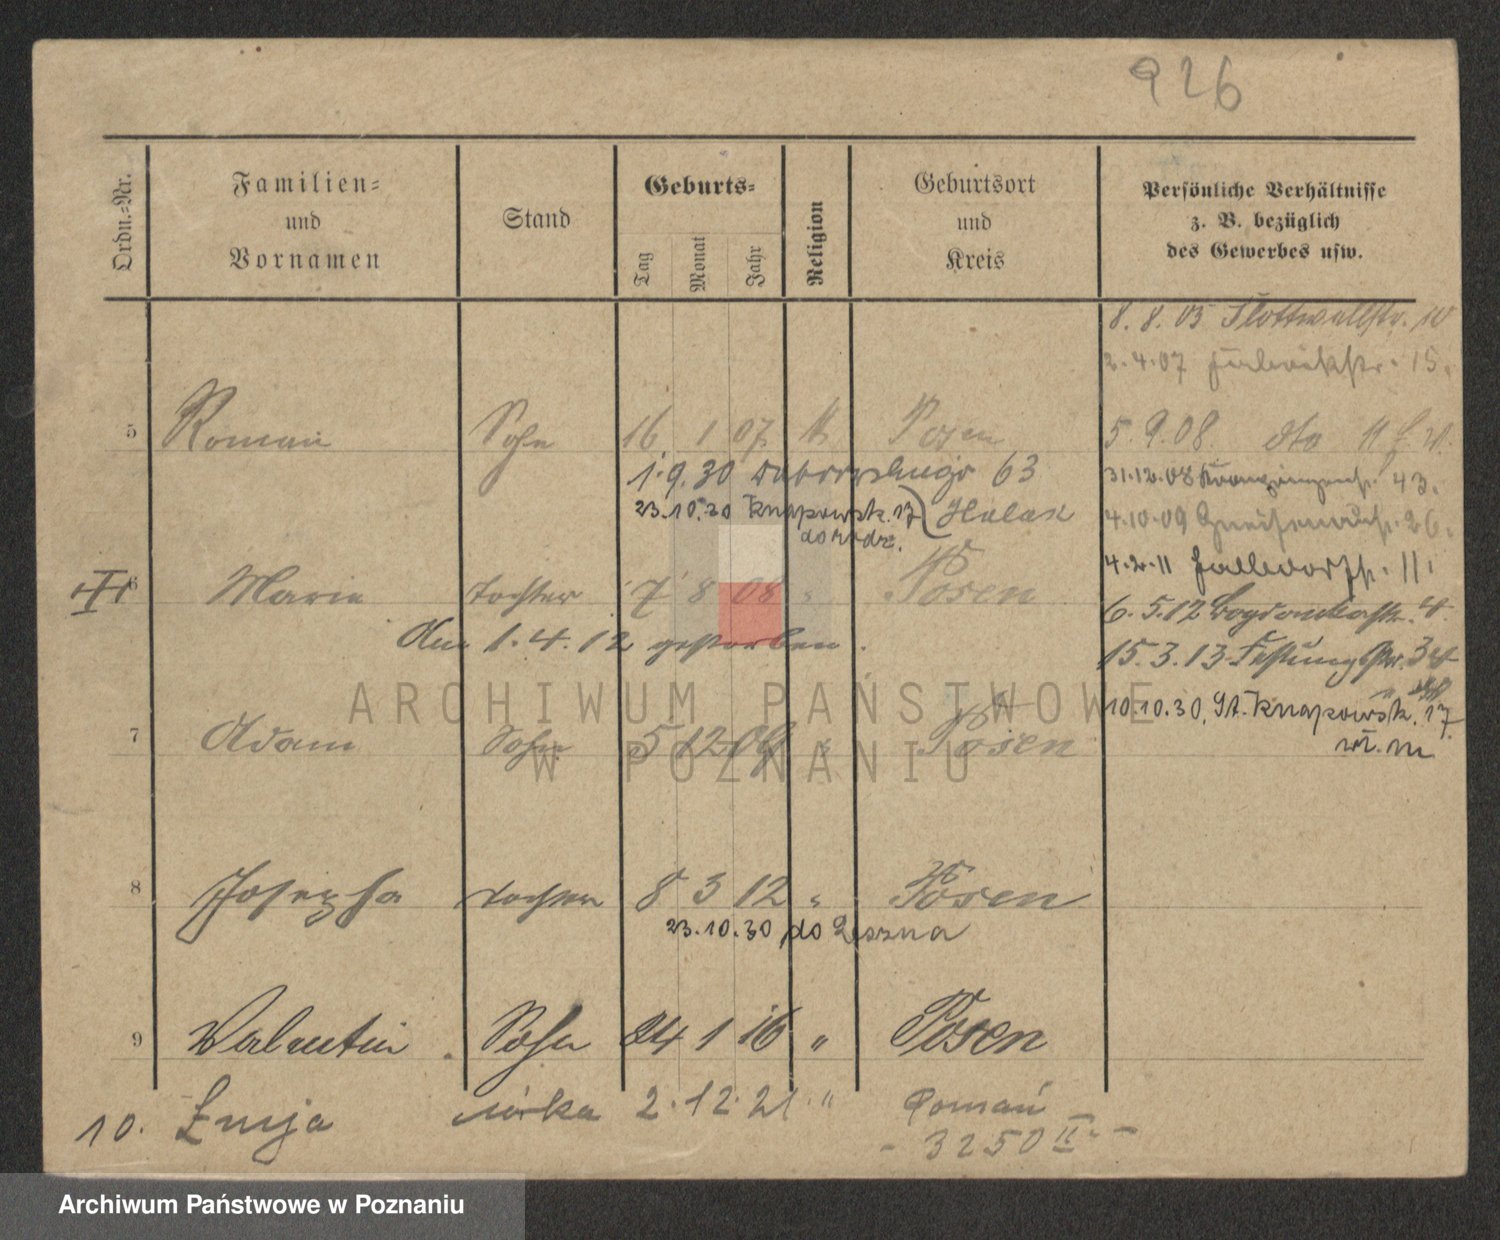 926
Ordn.-Nr.
Familien-
und
Vornamen
Stand
Geburts-
Tag
Monat
Jahr
Religion
Geburtsort
und
Kreis
Persönliche Verhältnisse
z. B. bezüglich
des Gewerbes usw.
8. 8. 03 Flottwellstr. 10
2.4.07 15.
5 Roman Sohn 16 1 07 k Posen
5.9.08. dto 11
1.9.30 63
31.12.08 43.
23.10.30 Knapowsk. 17
4.10.09 Gneisenaustr. 26.
do rodz.
4.2.11 11.
6 Marie Tochter 7 8 08 " Posen
6. 5.12 Bogdankastr. 4.
Am 1.4.12 gestorben.
15.3.13 Festungstr.
10.10.30. St. Knapowsk. 17
7 Adam Sohn 5 12 09 " Posen
8 Josepha Tochter 8 3 12 " Posen
23.10.30 do Leszna
9 Valentin Sohn 24 1 16 " Posen
10. Łucja córka 2.12.21. " Poznań
- 3250 II -
ARCHIWUM PAŃSTWOWE
W POZNANIU
Archiwum Państwowe w Poznaniu